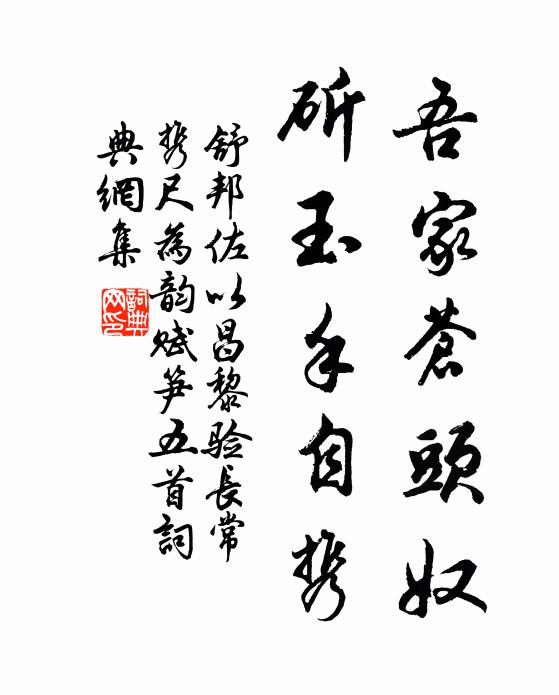 吾家蒼頭奴
斫玉手自携
舒邦佐以昌黎验長常
携尺為韵賦笋五首詞
典網集
詞典網印